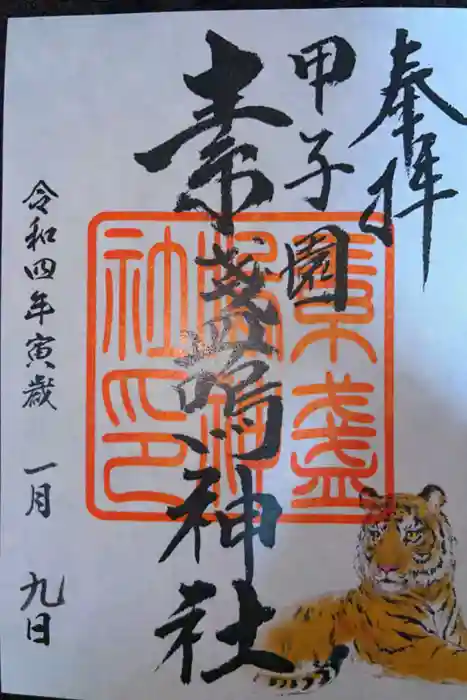 奉拝
甲子園
素盞嗚神社
令和四年寅歳 一月 九日